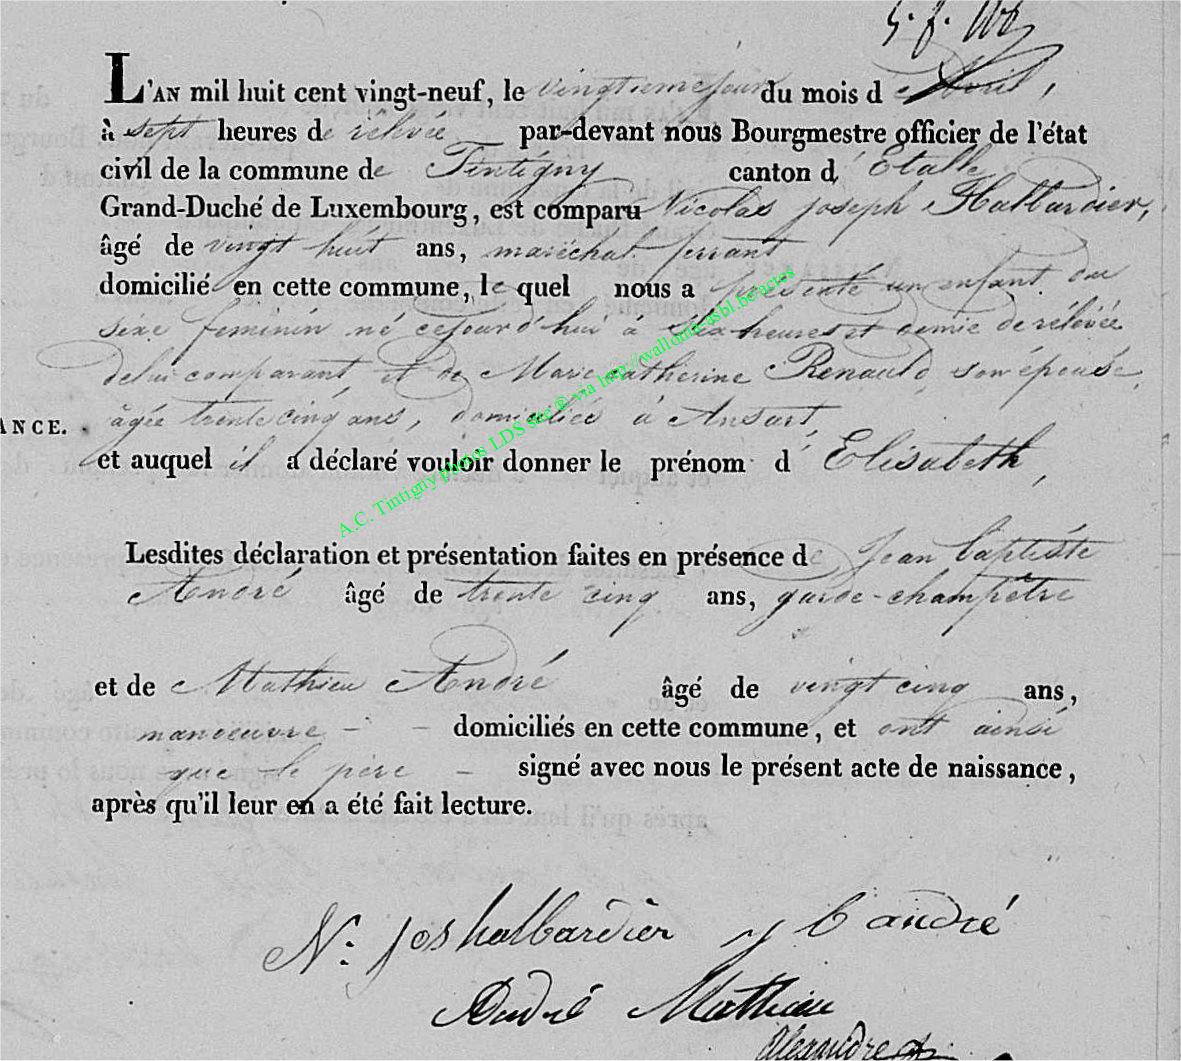 L'AN mil huit cent vingt-neuf, le vingtieme jour du mois d'Avril,
à sept heures de rélevée par-devant nous Bourgmestre officier de l'état
civil de la commune de Tintigny canton d'Etalle
Grand-Duché de Luxembourg, est comparu Nicolas joseph Halbardier,
âgé de vingt huit ans, maréchal ferrant
domicilié en cette commune, le quel nous a présenté un enfant du
sèxe feminin né cejourd'hui à six heures et demie de rélévée
de lui comparant et de Marie catherine Renauld son épouse,
ANCE. âgée trente cinq ans, domiciliée à Ansart,
et auquel il a déclaré vouloir donner le prénom d'Elisabeth,
Lesdites déclaration et présentation faites en présence de Jean baptiste
André âgé de trente cinq ans, garde-champêtre
et de Mathieu André âgé de vingt cinq ans,
manoeuvre - - domiciliés en cette commune, et ont ainsi
que le père - signé avec nous le présent acte de naissance,
après qu'il leur en a été fait lecture.
N. jos halbardier j b andré
André Mathieu
alexandre
A.C. Tintigny photos LDS site © via http://wallonia-asbl.be/actes